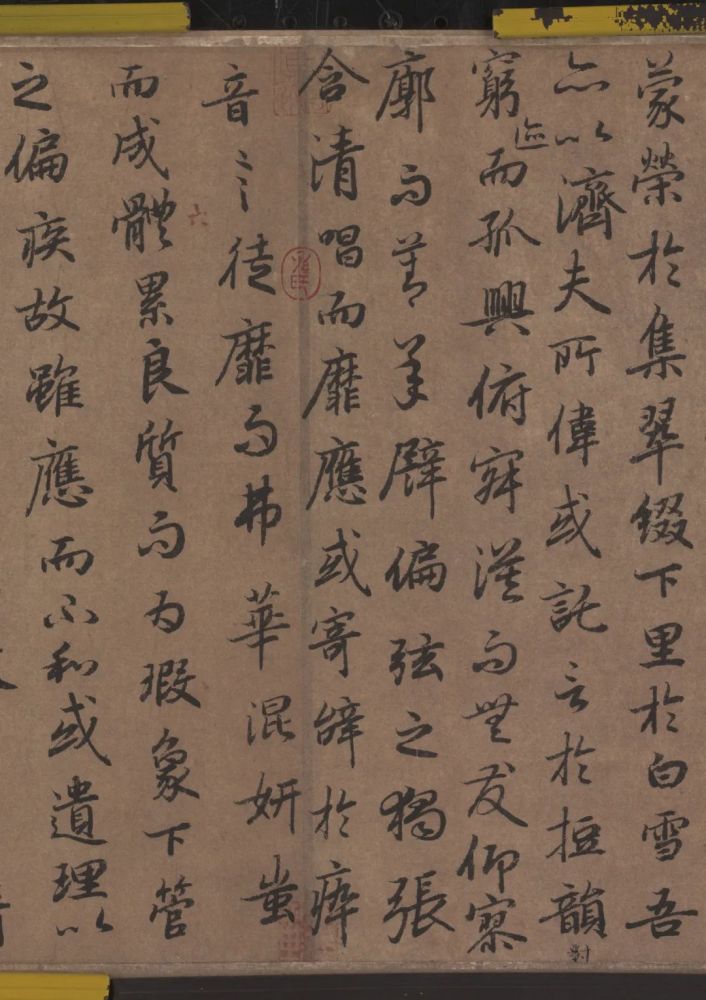 蒙榮於集翠綴下里於白雪吾
亦以濟夫所偉或託言於短韻對
窮迹而孤興俯寂漠而無友仰寥
廓而莫承譬偏弦之獨張
含清唱而靡應或寄辭於瘁
音言徒靡而弗華混妍蚩
而成體累良質而為瑕象下管
之偏疾故雖應而不和或遺理以
六